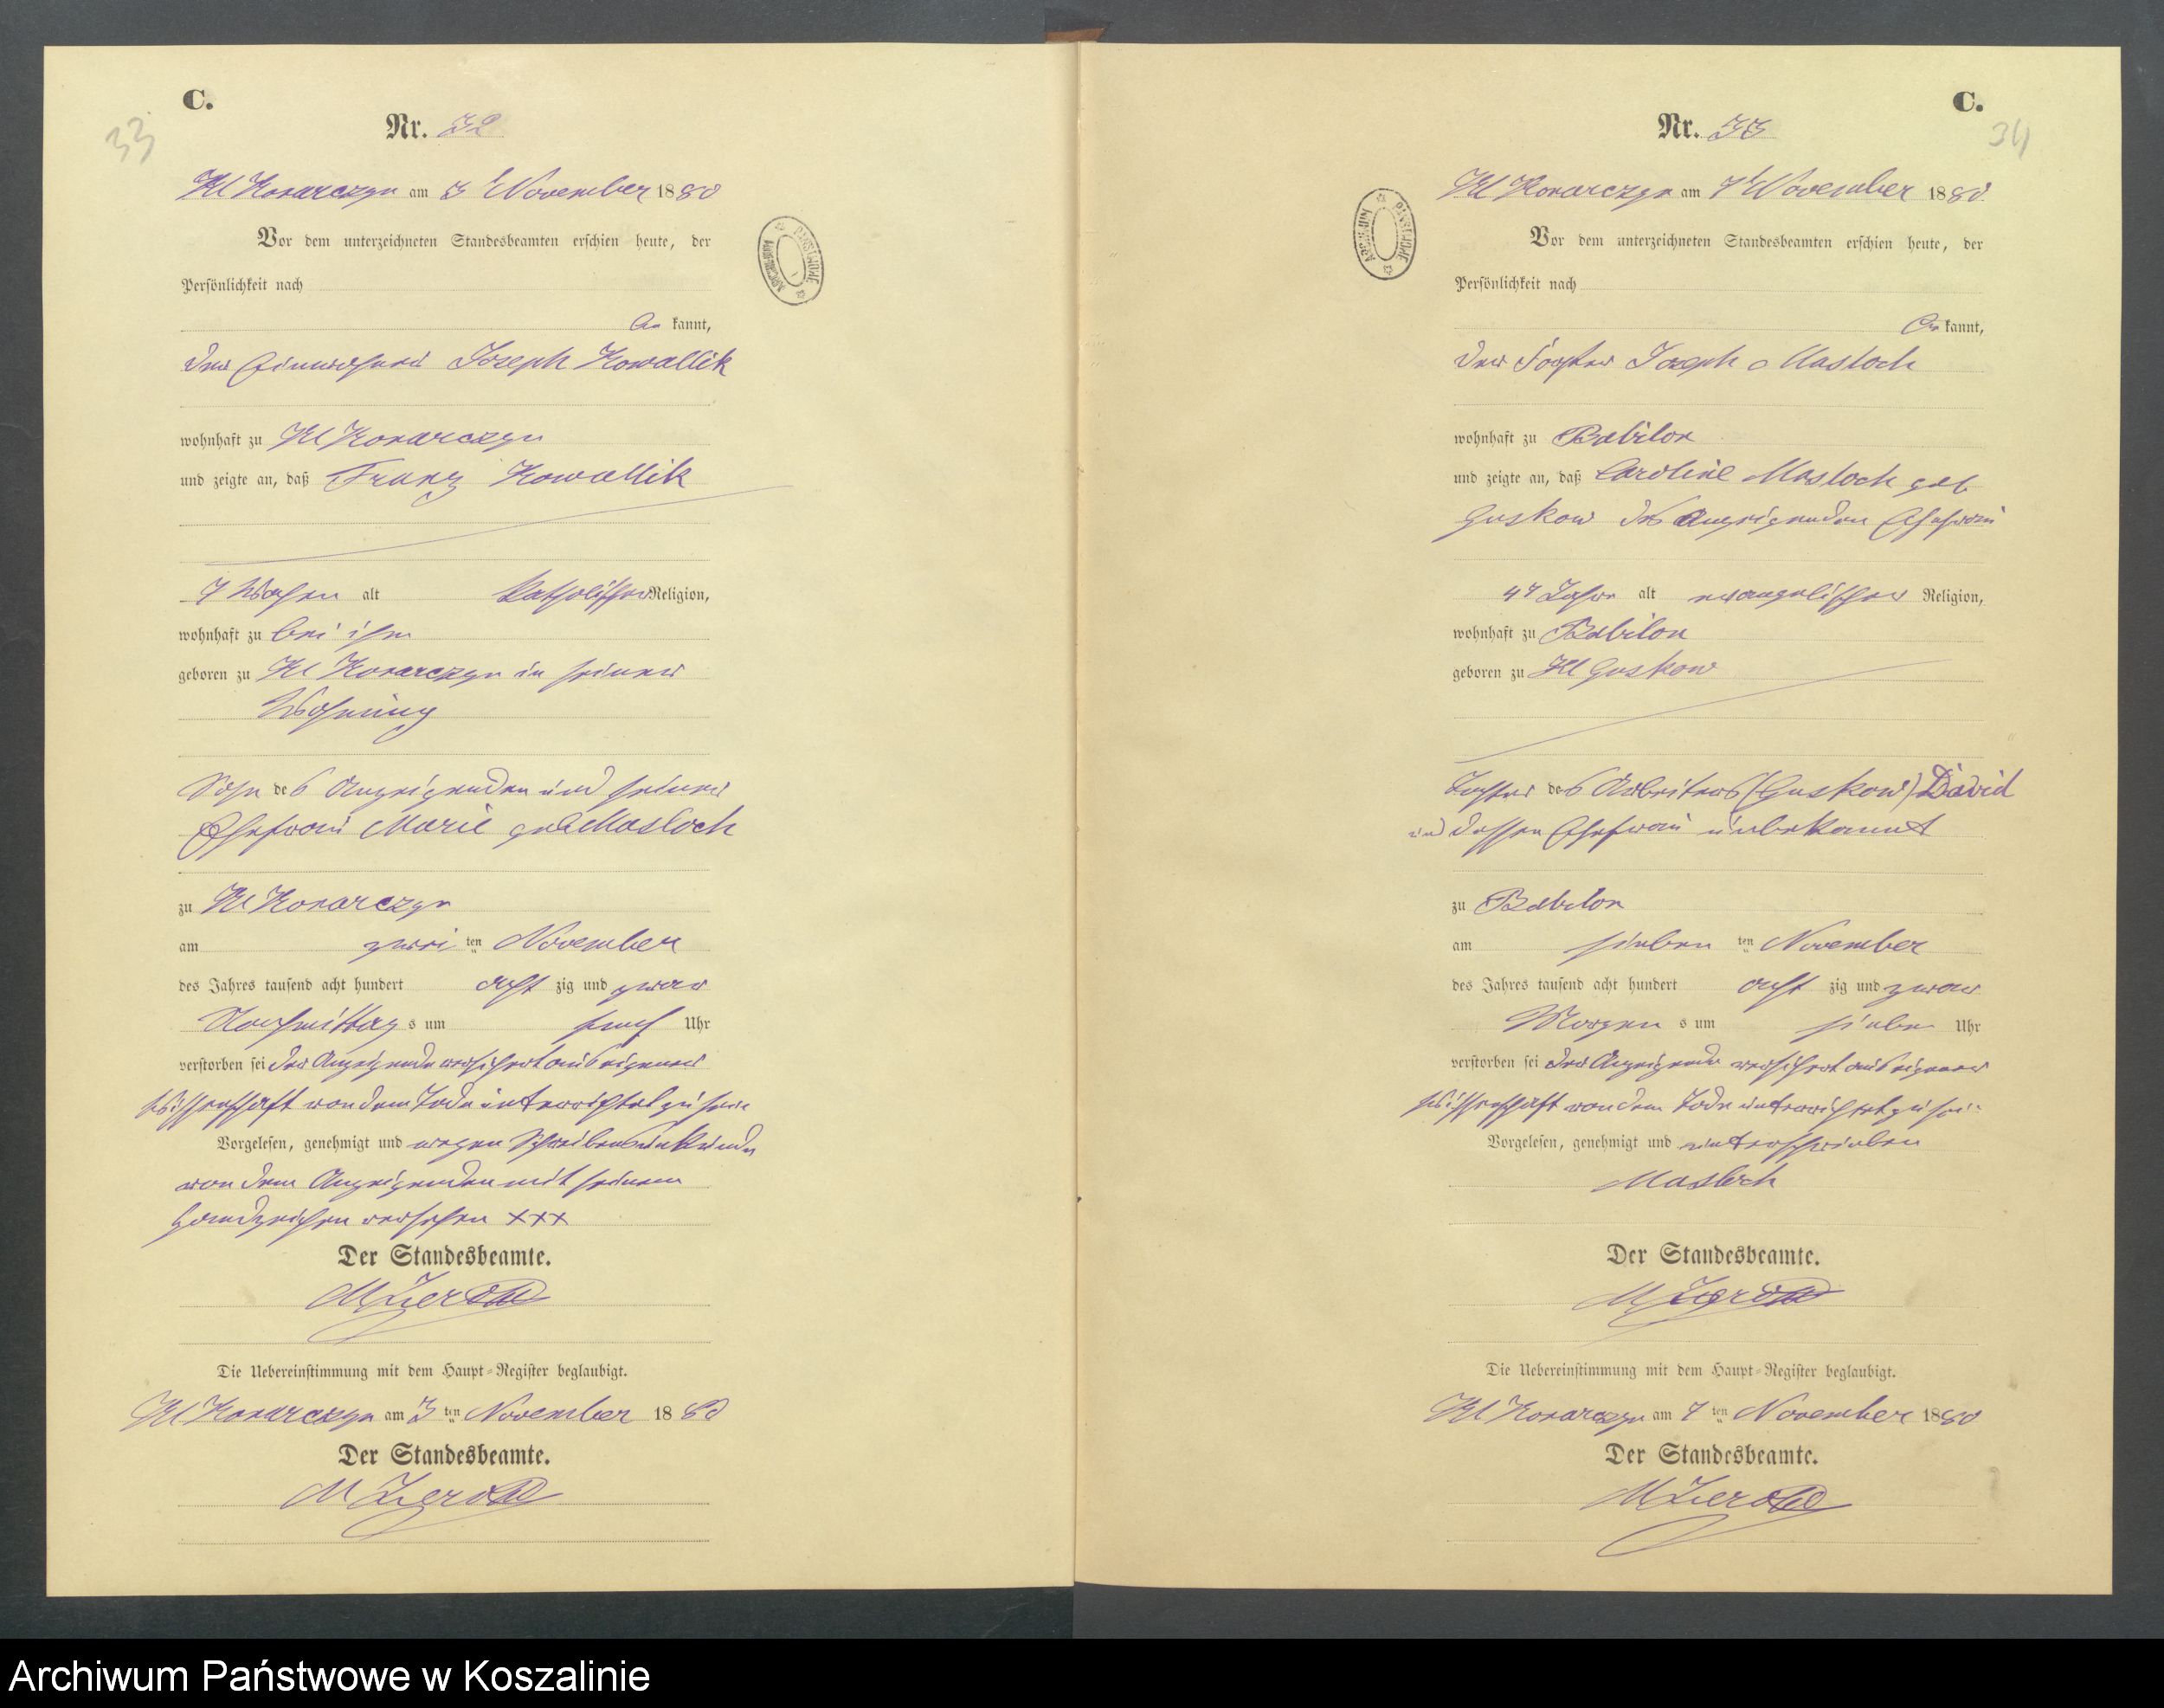 C.
33
Nr. 32
Kl Konarczyn am 3t November 1880
Vor dem unterzeichneten Standesbeamten erschien heute, der
Persönlichkeit nach
be kannt,
der Einwohner Joseph Kowallik
wohnhaft zu Kl Konarczyn
und zeigte an, daß Franz Kowallik
7 Wochen alt katholischer Religion,
wohnhaft zu bei ihm
geboren zu Kl Konarczyn in seiner
Wohnung
Sohn des Anzeigenden und seiner
Ehefrau Marie geb Masloch
zu Kl Konarczyn
am zwei ten November
des Jahres tausend acht hundert acht zig und zwar
Nachmittag s um fünf Uhr
verstorben sei der Anzeigende versichert aus eigener
Wissenschaft von dem Tode unterrichtet zu sein
Vorgelesen, genehmigt und wegen Schreibensunkunde
von dem Anzeigenden mit seinem
Handzeichen versehen XXX
Der Standesbeamte.
Die Uebereinstimmung mit dem Haupt-Register beglaubigt.
Kl Konarczyn am 3 ten November 1880
Der Standesbeamte.
C.
34
Nr. 33
Kl Konarczyn am 7t November 1880
Vor dem unterzeichneten Standesbeamten erschien heute, der
Persönlichkeit nach
be kannt,
der Förster Joseph Masloch
wohnhaft zu Babilon
und zeigte an, daß Caroline Masloch geb
Guskow des Anzeigenden Ehefrau
47 Jahr alt evangelischer Religion,
wohnhaft zu Babilon
geboren zu Kl Guskow
Tochter des Arbeiters (Guskow) David
und dessen Ehefrau unbekannt
zu Babilon
am sieben ten November
des Jahres tausend acht hundert acht zig und zwar
Morgen s um sieben Uhr
verstorben sei der Anzeigende versichert aus eigener
Wissenschaft von dem Tode unterrichtet zu sein
Vorgelesen, genehmigt und unterschrieben
Masloch
Der Standesbeamte.
Die Uebereinstimmung mit dem Haupt-Register beglaubigt.
Kl Konarczyn am 7 ten November 1880
Der Standesbeamte.
Archiwum Państwowe w Koszalinie